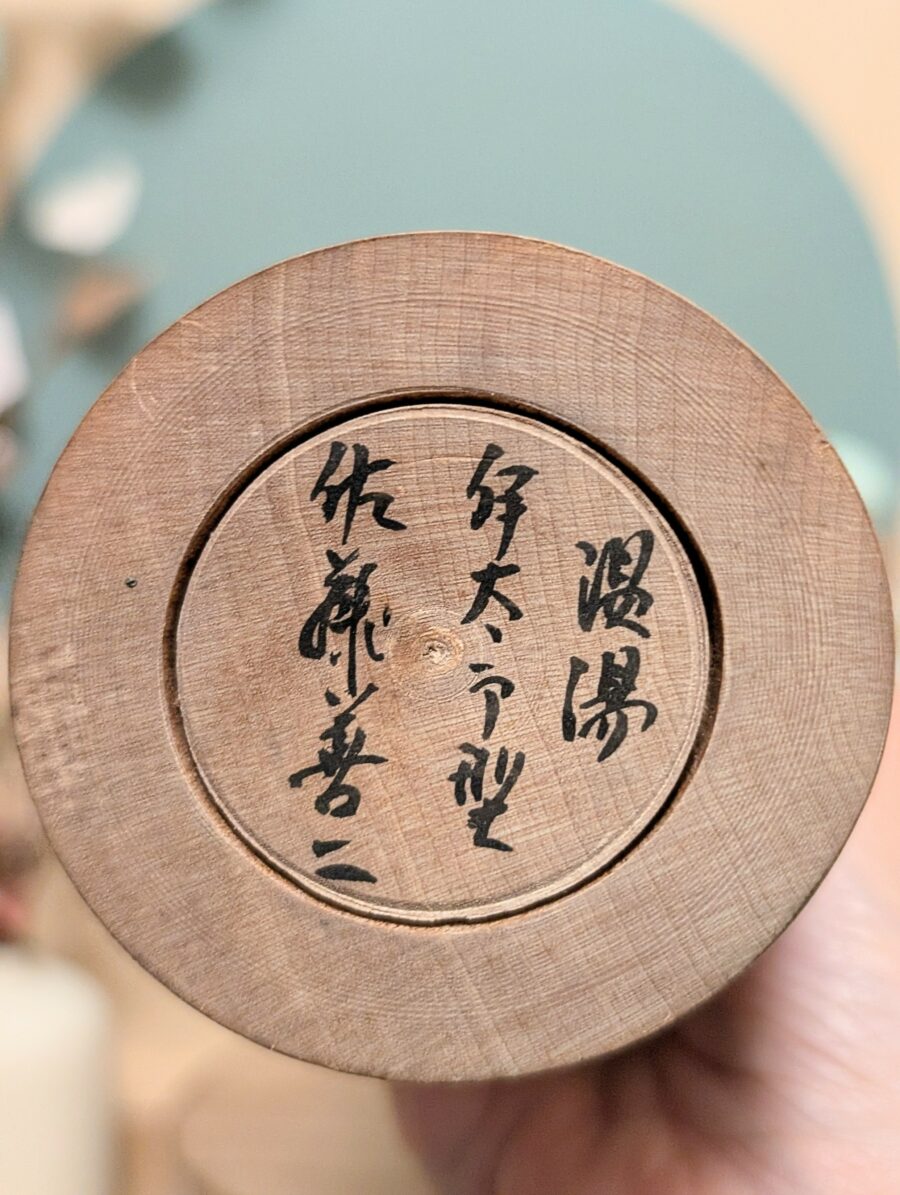 温湯
伊太郎型
佐藤善二